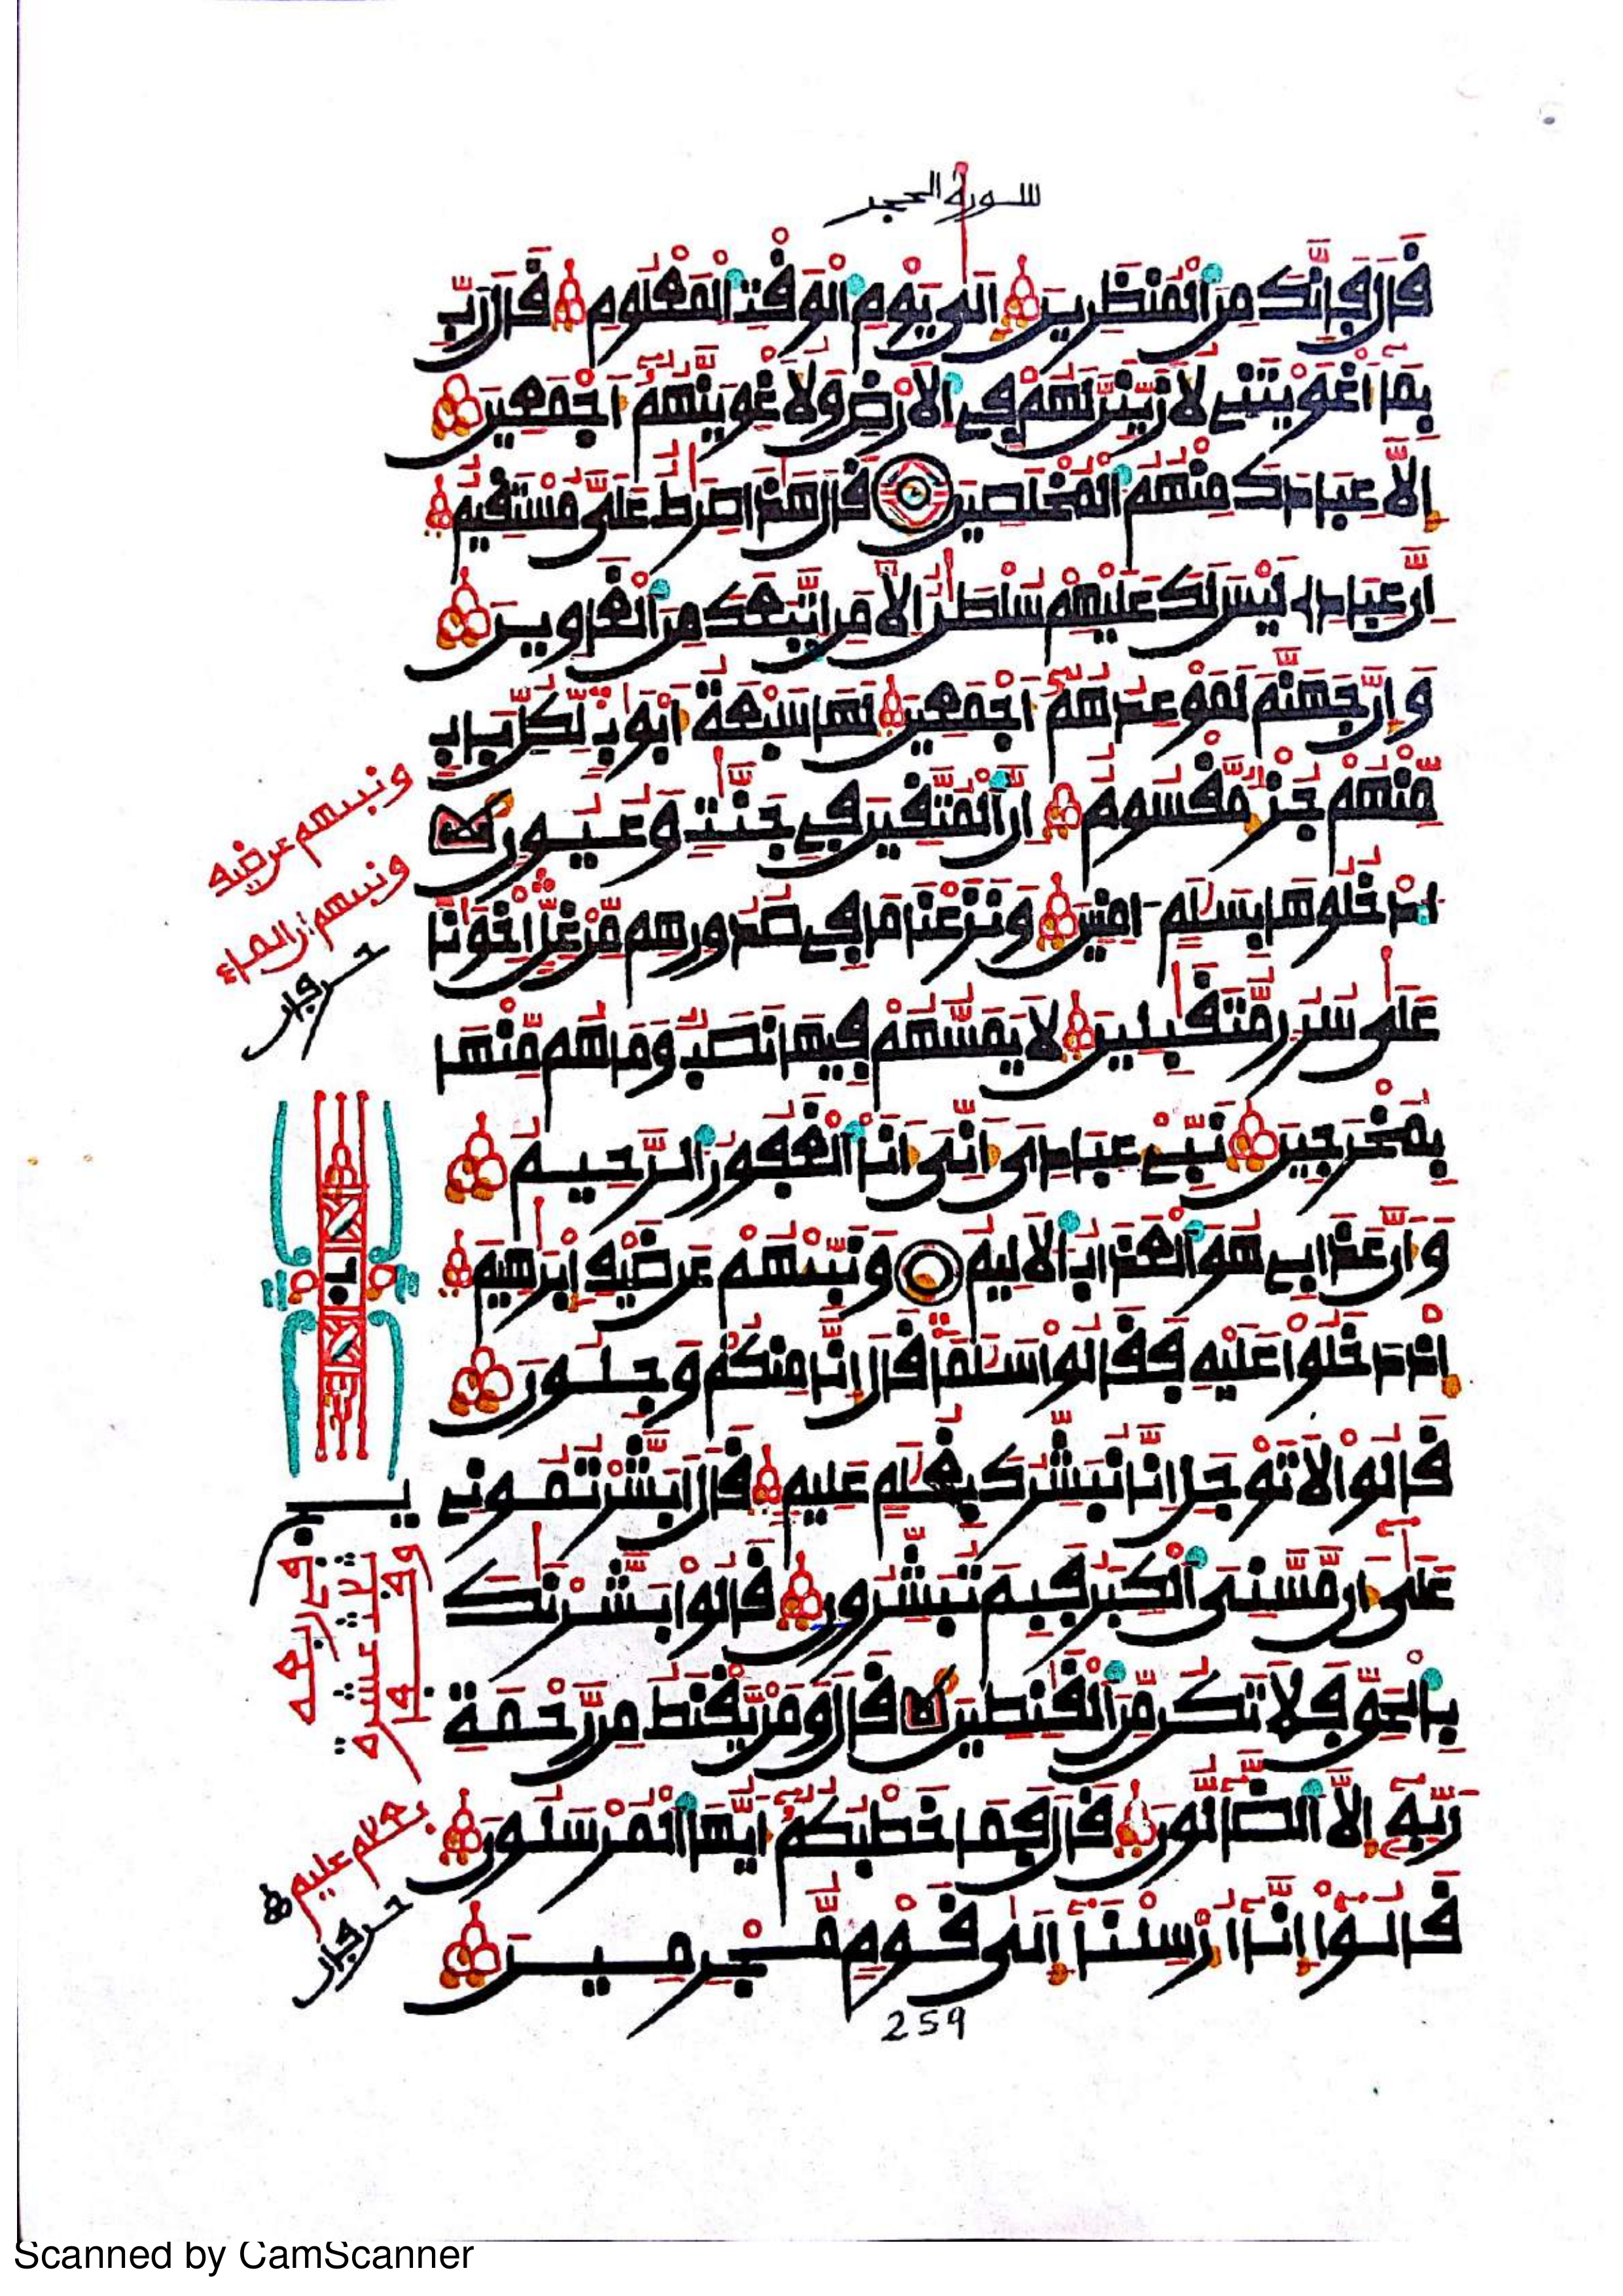 سورة الحجر
قَالَ فَإِنَّكَ مِنَ ٱلْمُنظَرِينَ إِلَىٰ يَوْمِ ٱلْوَقْتِ ٱلْمَعْلُومِ قَالَ رَبِّ
بِمَا أَغْوَيْتَنِي لَأُزَيِّنَنَّ لَهُمْ فِي ٱلْأَرْضِ وَلَأُغْوِيَنَّهُمُ أَجْمَعِينَ
إِلَّا عِبَادَكَ مِنْهُمُ ٱلْمُخْلَصِينَ قَالَ هَٰذَا صِرَٰطٌ عَلَيَّ مُسْتَقِيمٌ
إِنَّ عِبَادِي لَيْسَ لَكَ عَلَيْهِمْ سُلْطَٰنٌ إِلَّا مَنِ ٱتَّبَعَكَ مِنَ ٱلْغَاوِينَ
وَإِنَّ جَهَنَّمَ لَمَوْعِدُهُمُ أَجْمَعِينَ لَهَا سَبْعَةُ أَبْوَٰبٍ لِّكُلِّ بَابٍ
مِّنْهُمْ جُزْءٌ مَّقْسُومٌ إِنَّ ٱلْمُتَّقِينَ فِي جَنَّٰتٍ وَعُيُونٍ
ٱدْخُلُوهَا بِسَلَٰمٍ ءَامِنِينَ وَنَزَعْنَا مَا فِي صُدُورِهِم مِّنْ غِلٍّ إِخْوَٰنًا
عَلَىٰ سُرُرٍ مُّتَقَٰبِلِينَ لَا يَمَسُّهُمْ فِيهَا نَصَبٌ وَمَا هُم مِّنْهَا
بِمُخْرَجِينَ نَبِّئْ عِبَادِيَ أَنِّيَ أَنَا ٱلْغَفُورُ ٱلرَّحِيمُ
وَأَنَّ عَذَابِي هُوَ ٱلْعَذَابُ ٱلْأَلِيمُ وَنَبِّئْهُمْ عَن ضَيْفِ إِبْرَٰهِيمَ
إِذْ دَخَلُوا عَلَيْهِ فَقَالُوا سَلَٰمًا قَالَ إِنَّا مِنكُمْ وَجِلُونَ
قَالُوا لَا تَوْجَلْ إِنَّا نُبَشِّرُكَ بِغُلَٰمٍ عَلِيمٍ قَالَ أَبَشَّرْتُمُونِي
عَلَىٰ أَن مَّسَّنِيَ ٱلْكِبَرُ فَبِمَ تُبَشِّرُونِ قَالُوا بَشَّرْنَٰكَ
بِٱلْحَقِّ فَلَا تَكُن مِّنَ ٱلْقَٰنِطِينَ قَالَ وَمَنْ يَقْنَطُ مِن رَّحْمَةِ
رَبِّهِ إِلَّا ٱلضَّالُّونَ قَالَ فَمَا خَطْبُكُمُ أَيُّهَا ٱلْمُرْسَلُونَ
قَالُوا إِنَّا أُرْسِلْنَا إِلَىٰ قَوْمٍ مُّجْرِمِينَ
259
ونبيهم عن ضيف
ونبيهم أن الماء
حرفان
ربع
يج
وقف
ثلاثة عشرة
في ربعه
بغلام عليم
حرفان
Scanned by CamScanner